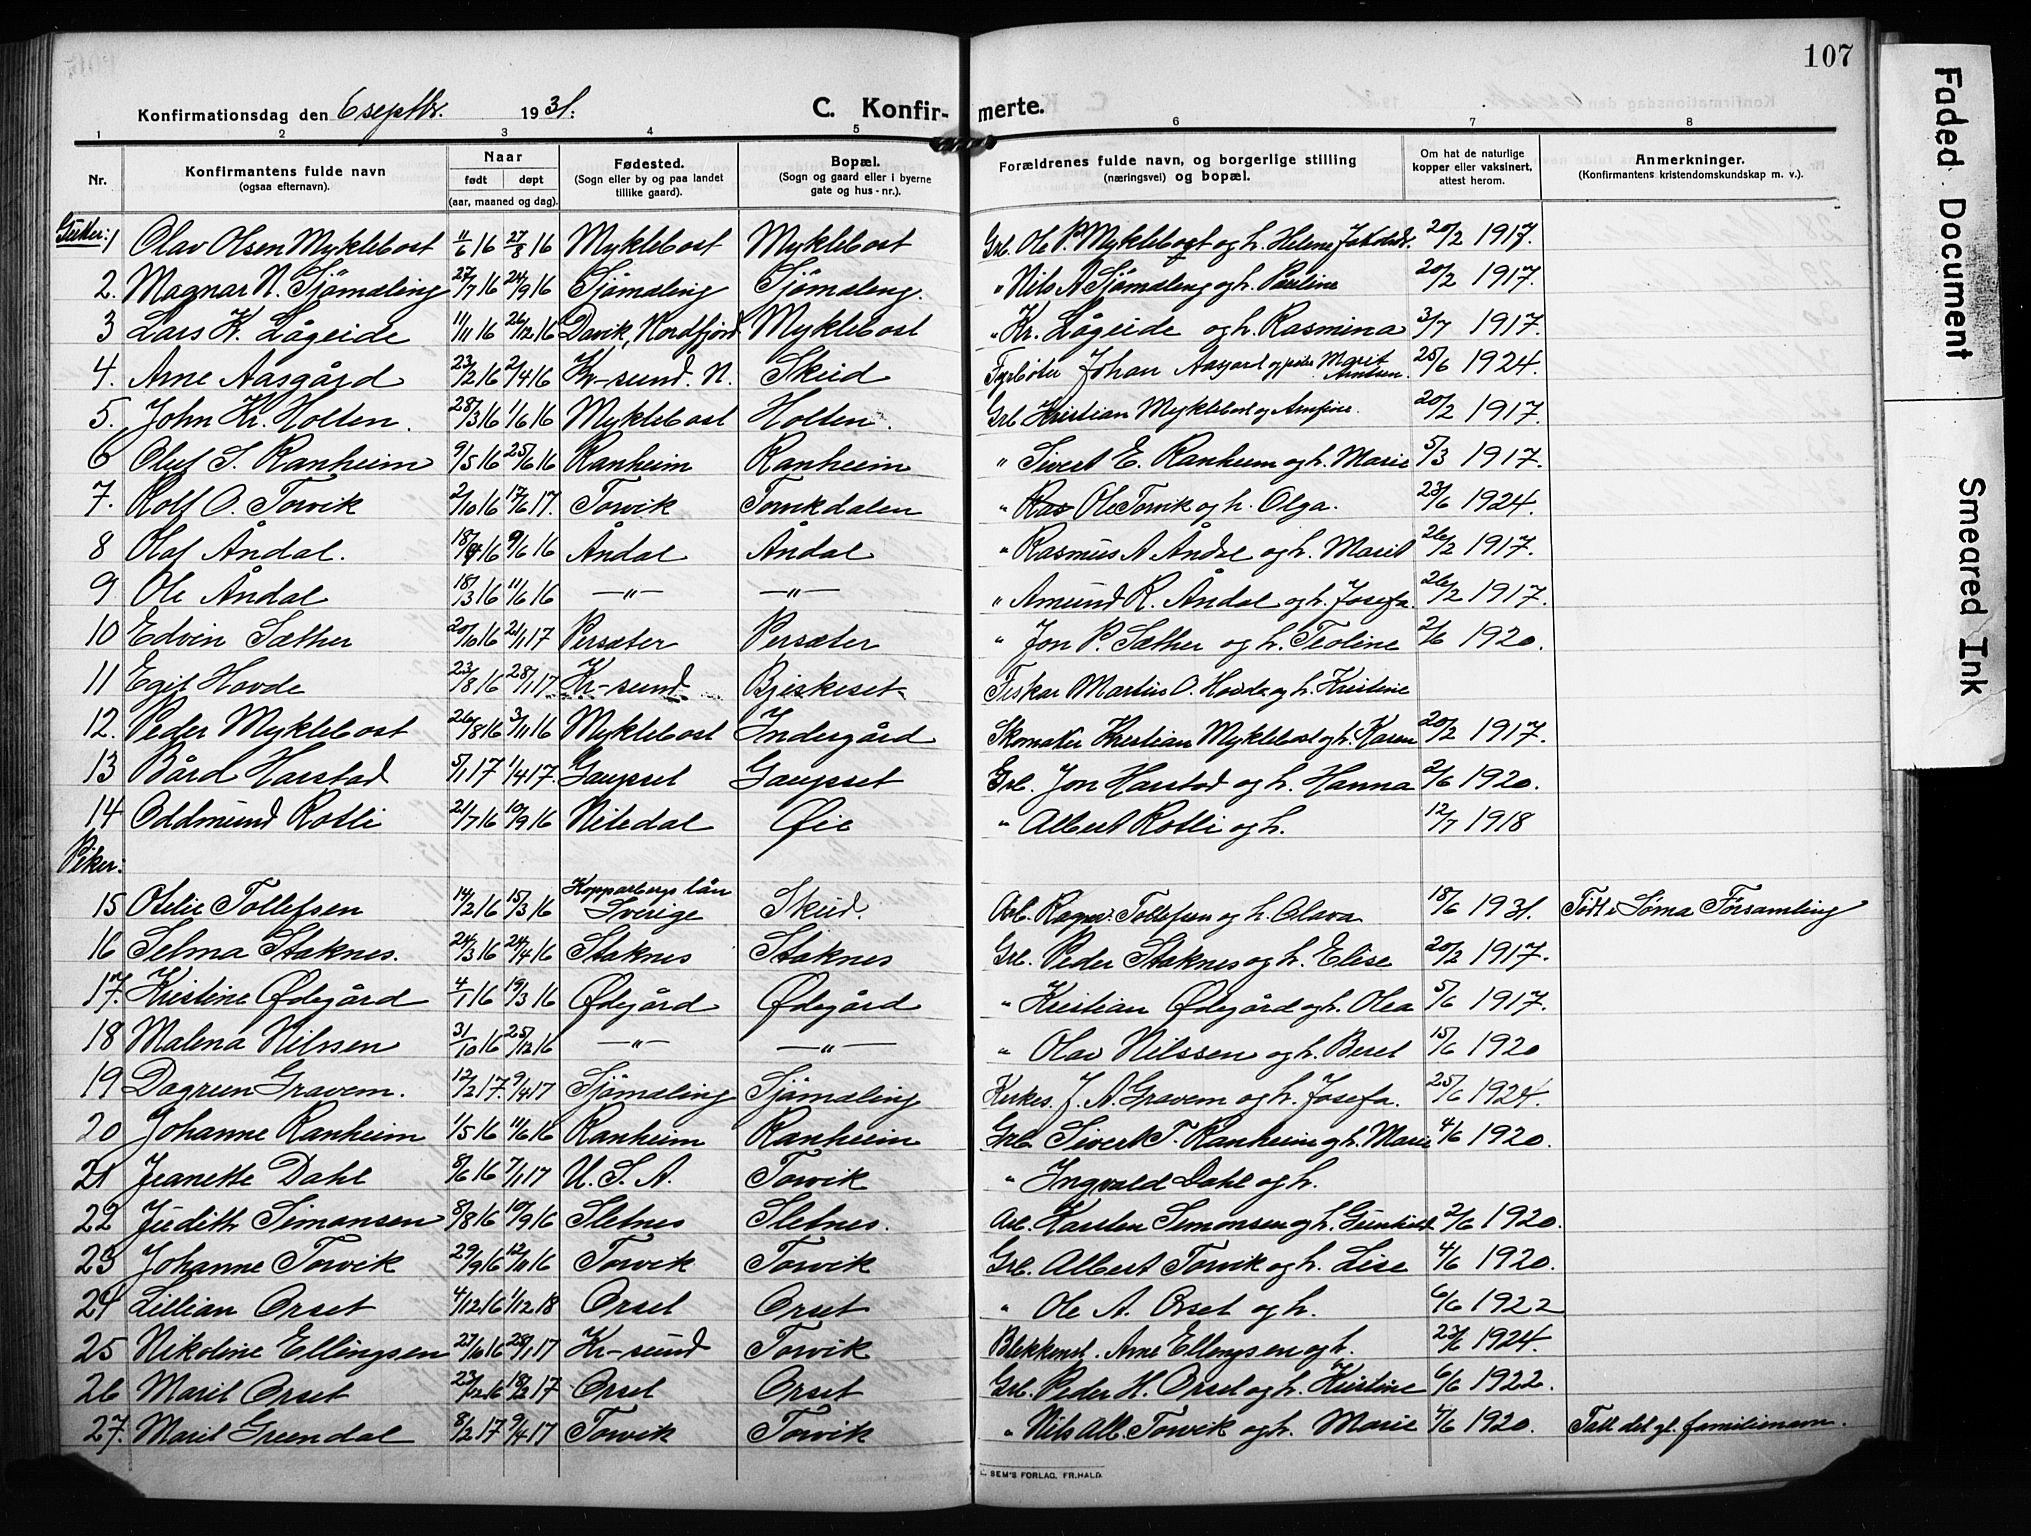 107
Konfirmationsdag den 6 septbr. 1931.
C. Konfirmerte.
1 2 3 4 5 6 7 8
Nr. Konfirmantens fulde navn (ogsaa efternavn). Naar født døpt (aar, maaned og dag). Fødested. (Sogn eller by og paa landet tillike gaard). Bopæl. (Sogn og gaard eller i byerne gate og hus-nr.). Forældrenes fulde navn, og borgerlige stilling (næringsvei) og bopæl. Om hat de naturlige kopper eller vaksinert, attest herom. Anmerkninger. (Konfirmantens kristendomskundskap m. v.).
Gutter:
1 Olav Olsen Myklebost 11/6 16 27/8 16 Myklebost Myklebost Grb. Ole P. Myklebost og h. Helene Jakobsdt. 20/2 1917.
2. Magnar N. Sjømæling 27/7 16 24/9 16 Sjømæling Sjømæling. " Nils A Sjømæling og h. Pauline 20/2 1917.
3 Lars K. Lågeide 11/11 16 26/12 16 Davik, Nordfjord Myklebost " Kr. Lågeide og h. Rasmina 3/7 1917.
4. Arne Aasgård 23/2 16 2/4 16 Kr-sund. N. Skeid Fyrbøter Johan Aasgard og pike Marit Arntsen. 25/6 1924.
5. John Kr. Holten. 28/3 16 1/6 16 Myklebost Holten. Grb Kristian Myklebost og Arnfine. 20/2 1917.
6 Oluf S. Ranheim 9/5 16 25/6 16 Ranheim Ranheim " Sivert E. Ranheim og h. Marie 5/3 1917.
7. Rolf O. Torvik 2/10 16 17/6 17. Torvik Torvikdalen " Ras Ole Torvik og h. Olga. 23/6 1924.
8 Olaf Åndal. 18/4 16 9/6 16 Åndal Åndal " Rasmus A Åndal og h. Marit 26/2 1917.
9 Ole Åndal 18/3 16 11/6 16 —"— —"— " Amund R. Åndal og h. Josefa. 26/2 1917.
10 Edvin Sæther 20/10 16 21/1 17 Persæter Persæter " Jon P. Sæther og h. Teoline 2/6 1920.
11 Egil Hovde 23/8 16 28/1 17 Kr-sund Bjerkeset Fiskar Martin O. Hovde og h. Kristine
12. Peder Myklebost 26/8 16 3/11 16 Myklebost Indergård Skomaker Kristian Myklebost og h. Karen 20/2 1917.
13 Bård Harstad 5/1 17 1/4 17. Gaupset Gaupset Grb. Jon Harstad og h. Hanna 2/6 1920.
14 Oddmund Rotli 21/7 16 10/9 16 Nitedal Øie " Albert Rotli og h. 12/7 1918
Piker:
15 Otelie Tollefsen 14/2 16 15/3 16 Kopparbergs län Sverige Skeid. Arb. Ragnv. Tollefsen og h. Olava 18/6 1931. Født i Sørna Församling
16 Selma Staknes. 24/3 16 24/4 16 Staknes Staknes Grb. Peder Staknes og h. Elise 20/2 1917.
17. Kristine Ødegård 4/1 16 19/3 16 Ødegård Ødegård " Kristian Ødegård og h. Olea 5/6 1917.
18 Malena Nilssen 31/10 16 25/12 16 —"— —"— " Olav Nilssen og h. Beret 15/6 1920
19 Dagrun Gravem. 12/2 17. 9/4 17 Sjømæling Sjømæling Kirkes. J. A. Gravem og h. Josefa. 25/6 1924.
20 Johanne Ranheim 1/5 16 11/6 16 Ranheim Ranheim Grb. Sivert T. Ranheim og h. Marie 4/6 1920.
21 Jeanette Dahl 8/6 16 7/1 17 U. S. A. Torvik " Ingvald Dahl og h.
22 Judith Simonsen 8/8 16 10/9 16 Sletnes Sletnes. Arb. Karsten Simonsen og h. Gunhild 2/6 1920.
23 Johanne Torvik 29/9 16 12/11 16 Torvik Torvik Grb. Albert Torvik og h. Lise 4/6 1920.
24 Lillian Orset 4/12 16 1/12 18 Orset Orset " Ole A. Orset og h. 6/6 1922
25 Nikoline Ellingsen 27/10 16 28/1 17 Kr-sund Torvik Blekkensl. Arne Ellingsen og h. 23/6 1924.
26 Marit Orset 23/12 16 18/2 17 Orset Orset Grb. Peder H. Orset og h. Kristine 6/6 1922.
27. Marit Grendal 8/2 17 9/4 17 Torvik Torvik " Nils Alb. Torvik og h. Marie 4/6 1920. Tatt det gl. familienavn.
SEM'S FORLAG. FR.HALD.
Faded Document
Smeared Ink